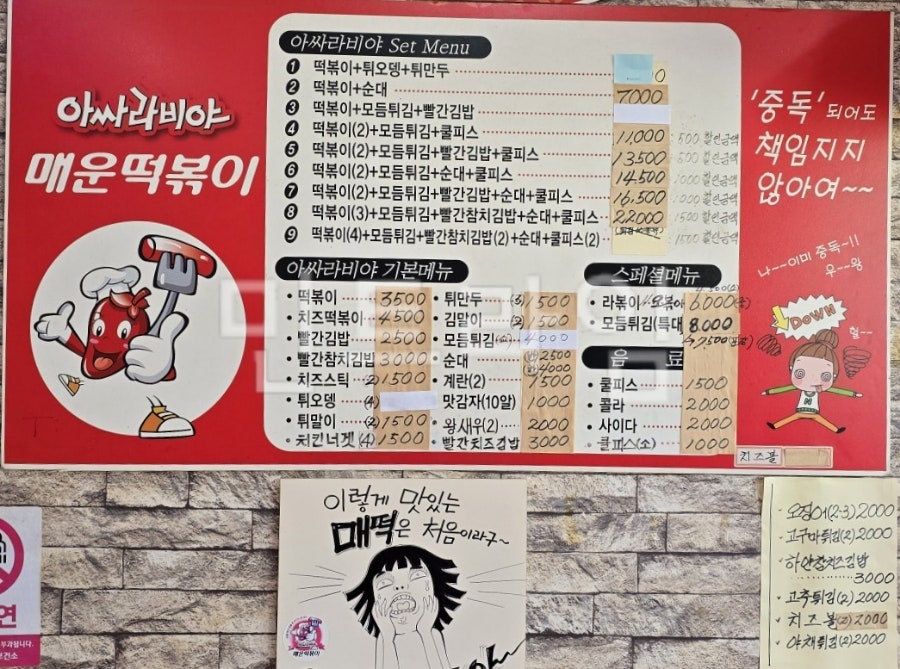 아싸라비야
매운떡볶이
아싸라비야 Set Menu
1 떡볶이+튀오뎅+튀만두 0
2 떡볶이+순대 7000
3 떡볶이+모듬튀김+빨간김밥
4 떡볶이(2)+모듬튀김+쿨피스 11,000 :500 할인금액
5 떡볶이(2)+모듬튀김+빨간김밥+쿨피스 13500 :500 할인금액
6 떡볶이(2)+모듬튀김+순대+쿨피스 14,500 :1000 할인금액
7 떡볶이(2)+모듬튀김+빨간김밥+순대+쿨피스 16,500 :1000 할인금액
8 떡볶이(3)+모듬튀김+빨간참치김밥+순대+쿨피스 22,000 :1500 할인금액
9 떡볶이(4)+모듬튀김+빨간참치김밥(2)+순대+쿨피스(2) :1500 할인금액
'중독' 되어도
책임지지
않아여~~
나~이미 중독~!!
우~왕
DOWN
헐~
아싸라비야 기본메뉴
떡볶이 3500
치즈떡볶이 4500
빨간김밥 2500
빨간참치김밥 3000
치즈스틱 (2) 1500
튀오뎅 (4)
튀말이 (2) 1500
치킨너겟 (4) 1500
튀만두 (3) 1500
김말이 (2) 1500
모듬튀김 4000
순대 2500
4000
계란(2) 1500
맛감자(10알) 1000
왕새우(2) 2000
빨간치즈김밥 3000
스페셜메뉴
라볶이 6,000
모듬튀김(특대 8,000
7,500
음 료
쿨피스 1500
콜라 2000
사이다 2000
쿨피스(소) 1000
치즈볼
이렇게 맛있는
매떡은 처음이라구~
매운떡볶이
오징어(2-3) 2000
고구마튀김(2) 2000
하얀참치즈김밥
3000
고추튀김(2) 2000
치즈볼(2) 2000
야채튀김(2) 2000
연